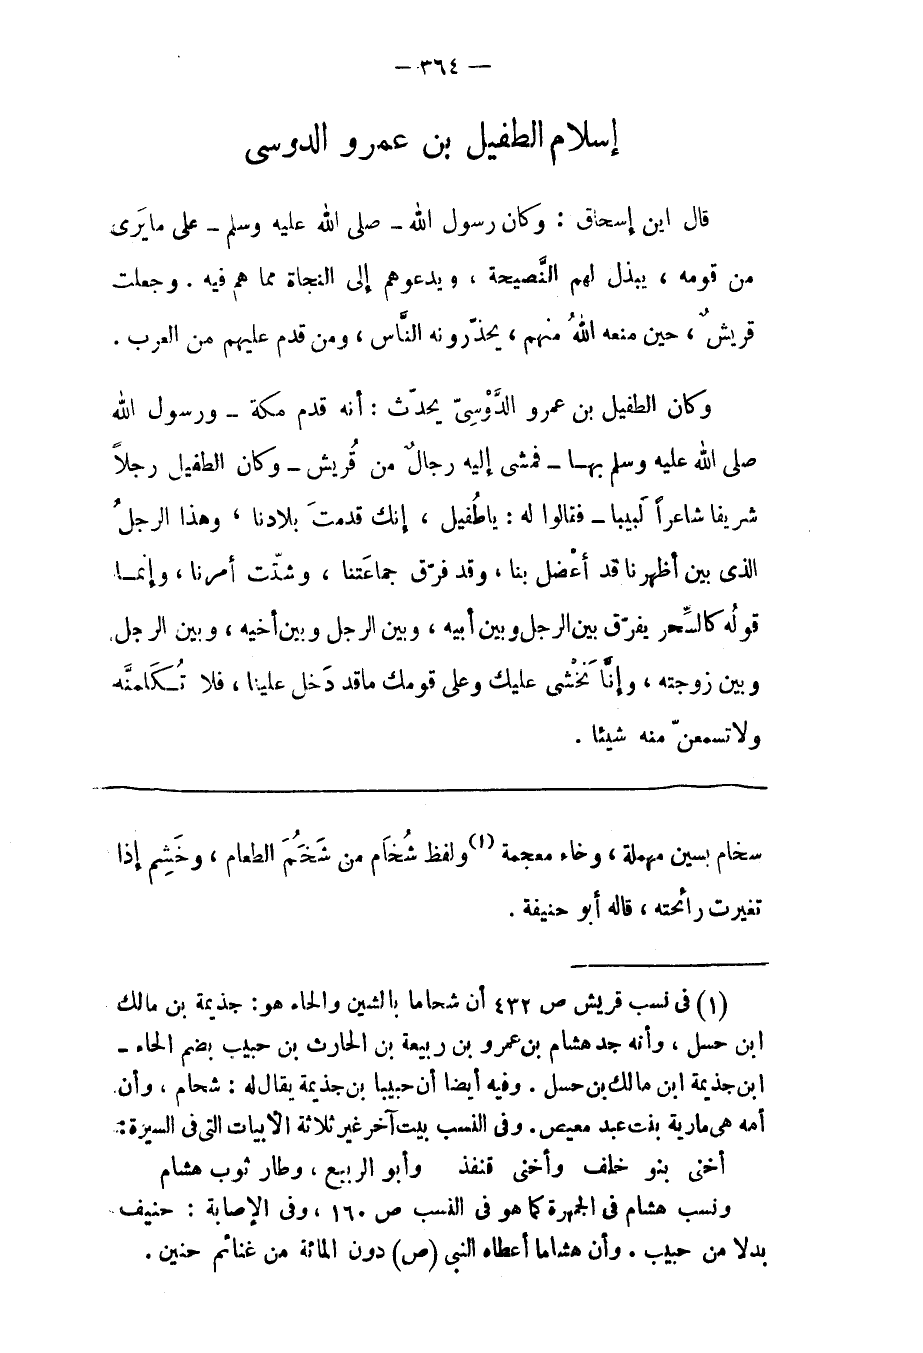 — ٣٦٤ —
إسلام الطفيل بن عمرو الدوسى
قال ابن إسحاق : وكان رسول الله ــ صلى الله عليه وسلم ــ على ما يَرَى
من قومه ، يبذل لهم النَّصيحة ، ويدعوهم إلى النجاة مما هم فيه . وجعلت
قريشٌ ، حين منعه اللهُ منهم ، يحذّرونه النَّاس ، ومن قدم عليهم من العرب .
وكان الطفيل بن عمرو الدَّوْسِىّ يحدّث : أنه قدم مكة ــ ورسول الله
صلى الله عليه وسلم بهـا ــ فمشى إليه رجالٌ من قُريش ــ وكان الطفيل رجلاً
شريفا شاعراً لَبيبا ــ فقالوا له : ياطُفيل ، إنك قدمتَ بلادنا ، وهذا الرجلُ
الذى بين أظهرنا قد أعْضل بنا ، وقد فرّق جماعَتنا ، وشتّت أمرنا ، وإنمـا
قولُه كالسِّحر يفرّق بين الرجل وبين أبيه ، وبين الرجل وبين أخيه ، وبين الرجل
وبين زوجته ، وإنَّا نَخْشى عليك وعلى قومك ماقد دَخل علينا ، فلا تُـكَلمنَّه
ولا تسمعنّ منه شيئا .
سخام بسين مهملة ، وخاء معجمة (١) ولفظ شُخاَم من شَخَمُ الطعام ، وخَشِم إذا
تغيرت رائحته ، قاله أبو حنيفة .
(١) فى نسب قريش ص ٤٣٢ أن شحاما بالشين والحاء هو: جذيمة بن مالك
ابن حسل ، وأنه جد هشام بن عمرو بن ربيعة بن الحارث بن حبيب بضم الحاء ــ
ابن جذيمة ابن مالك بن حسل . وفيه أيضا أن حبيبا بن جذيمة يقال له : شحام ، وأن
أمه هى مارية بنت عبد معيص . وفى النسب بيت آخر غير ثلاثة الأبيات التى فى السيرة :
أخنى بنو خلف وأخنى قنفذ وأبو الربيع ، وطار ثوب هشام
ونسب هشام فى الجمهرة كما هو فى النسب ص ١٦٠ ، وفى الإصابة : حنيف
بدلا من حبيب . وأن هشاما أعطاه النبى (ص) دون المائة من غنائم حنين .